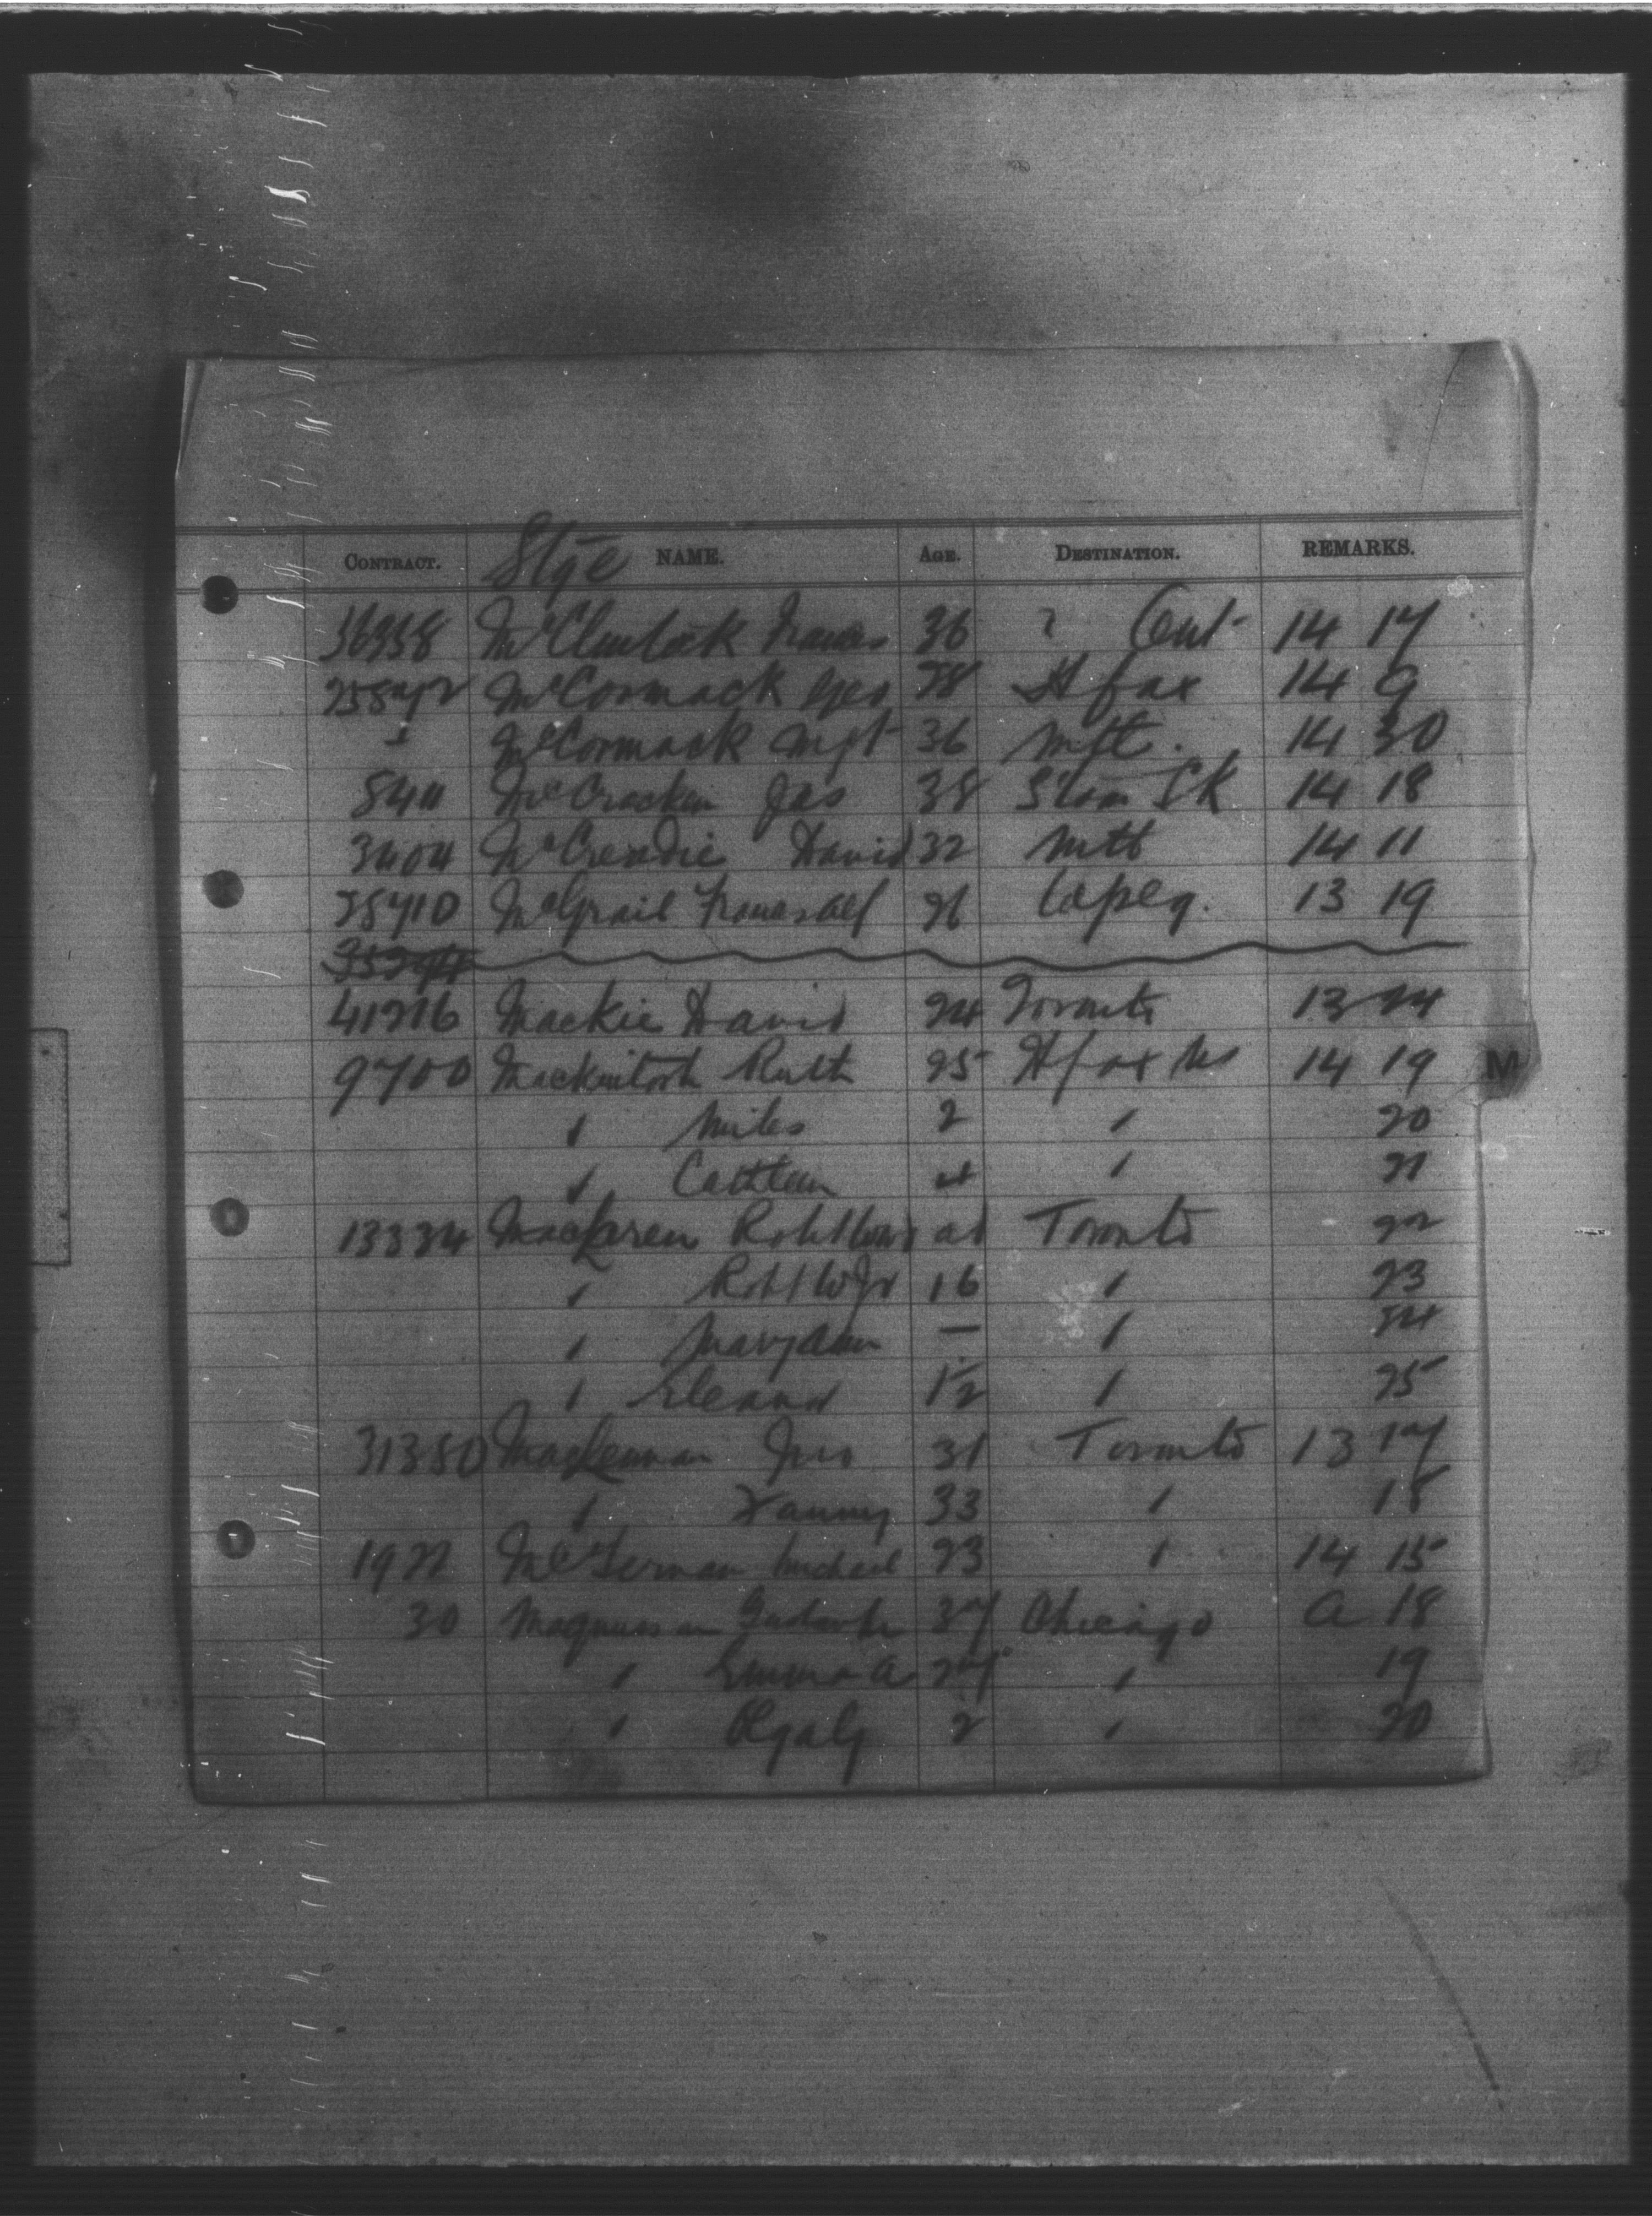 Stge
CONTRACT. NAME. AGE. DESTINATION. REMARKS.
36358 McClintock Frances 36 ? Ont 14 17
25872 McCormack Geo 28 Hfax 14 9
" McCormack Mgt 36 Mtl. 14 30
8411 McCracken Jas 38 Sk 14 18
3404 McCreadie David 32 Mtl 14 11
28710 McGrail Frances 26 Wpeg. 13 19
41276 Mackie David 24 Toronto 13 24
9700 Mackintosh Ruth 25 Hfax NS 14 19
" Miles 2 " 20
" Cathleen 4 " 21
13334 MacLaren Robt ad Toronto 22
" Robt W Jr 16 " 23
" Mary Ann — " 24
" Eleanor 1½ " 25
31380 MacLennan Jno 31 Toronto 13 17
" Fanny 33 " 18
1922 McTernan Michael 23 " 14 15
30 Magnusson 37 Chicago A 18
" Emma A 27 " 19
" 2 " 20
M